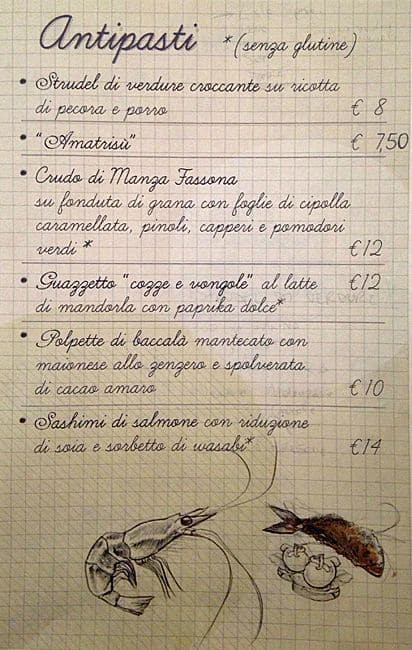 Antipasti *(senza glutine)
• Strudel di verdure croccante su ricotta
di pecora e porro € 8
• "Amatrisù" € 7,50
• Crudo di Manza Fassona
su fonduta di grana con foglie di cipolla
caramellata, pinoli, capperi e pomodori
verdi * €12
• Guazzetto "cozze e vongole" al latte €12
di mandorla con paprika dolce*
• Polpette di baccalà mantecato con
maionese allo zenzero e spolverata
di cacao amaro €10
• Sashimi di salmone con riduzione
di soia e sorbetto di wasabi* €14